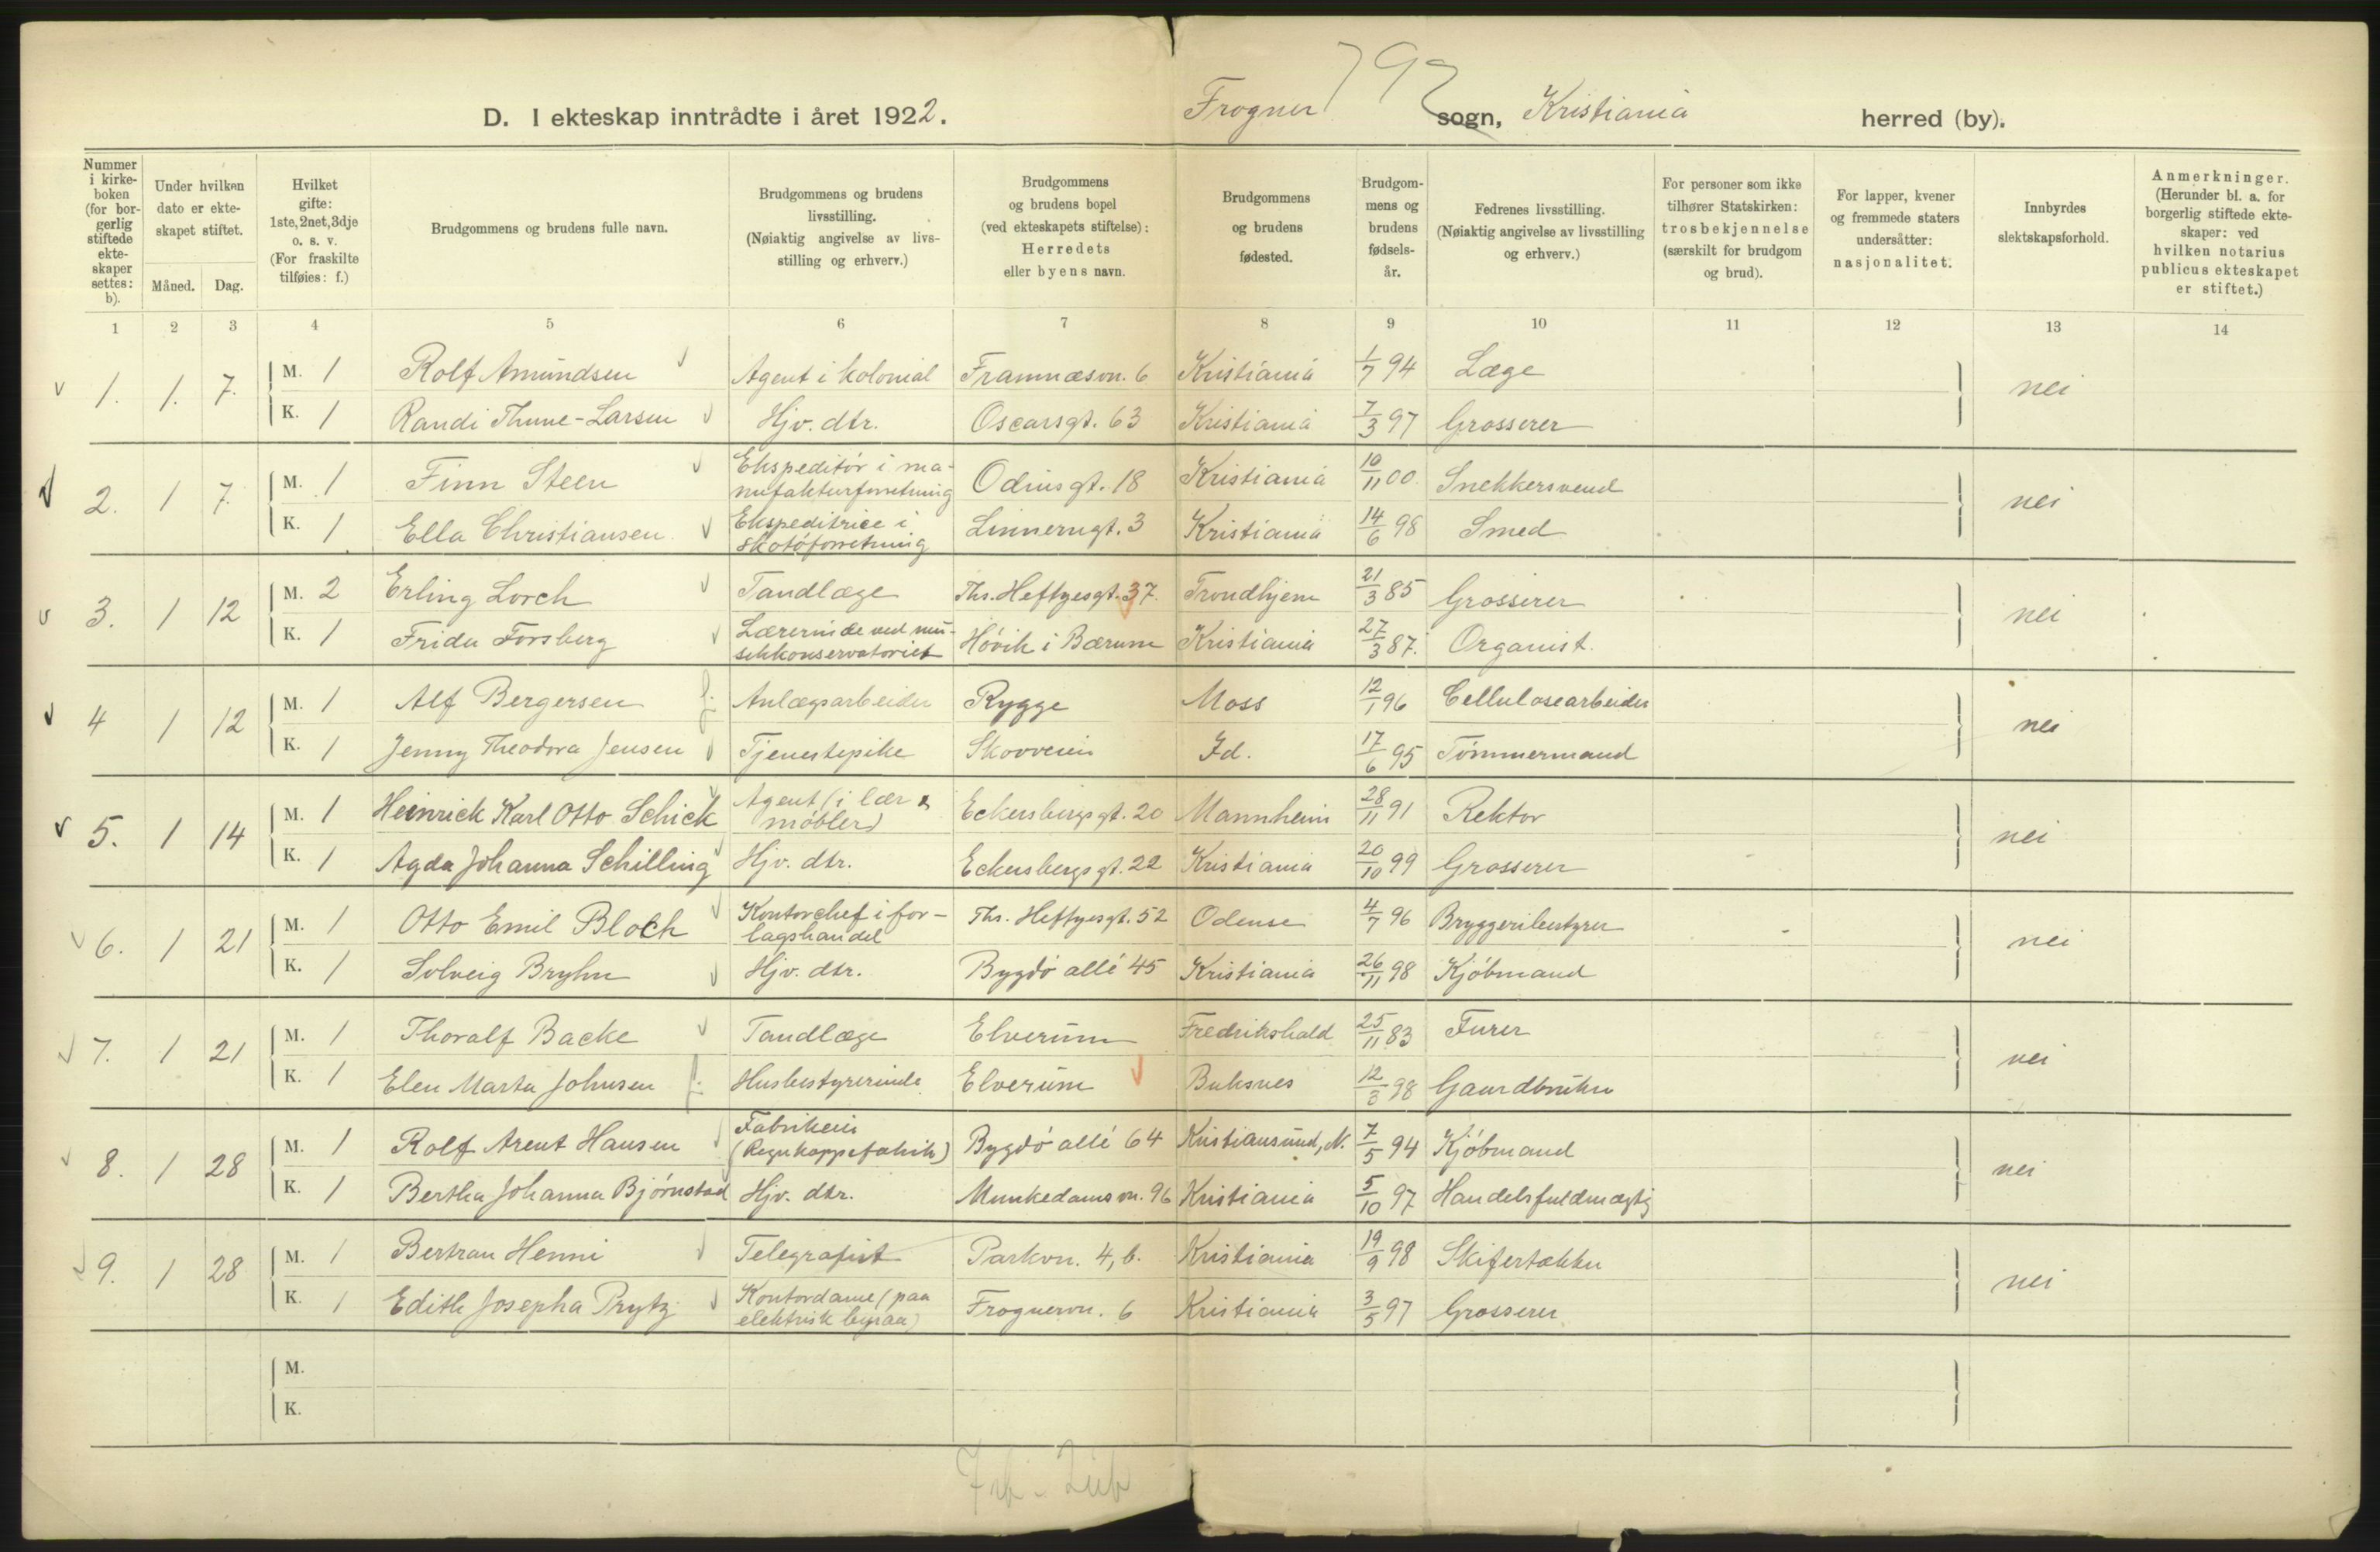 792
D. I ekteskap inntrådte i året 1922. Frogner sogn, Kristiania herred (by).
Nummer i kirkeboken (for borgerlig stiftede ekteskaper settes: b).
Under hvilken dato er ekteskapet stiftet.
Måned. Dag.
Hvilket gifte: 1ste, 2net, 3dje o. s. v. (For fraskilte tilføies: f.)
Brudgommens og brudens fulle navn.
Brudgommens og brudens livsstilling. (Nøiaktig angivelse av livsstilling og erhverv.)
Brudgommens og brudens bopel (ved ekteskapets stiftelse): Herredets eller byens navn.
Brudgommens og brudens fødested.
Brudgommens og brudens fødselsår.
Fedrenes livsstilling. (Nøiaktig angivelse av livsstilling og erhverv.)
For personer som ikke tilhører Statskirken: trosbekjennelse (særskilt for brudgom og brud).
For lapper, kvener og fremmede staters undersåtter: nasjonalitet.
Innbyrdes slektskapsforhold.
Anmerkninger. (Herunder bl. a. for borgerlig stiftede ekteskaper: ved hvilken notarius publicus ekteskapet er stiftet.)
1 2 3 4 5 6 7 8 9 10 11 12 13 14
1. 1. 7. M. 1 Rolf Amundsen Agent i kolonial Framnæsvn. 6 Kristiania 1/7 94 Læge nei
K. 1 Randi Thune-Larsen Hjv. dtr. Oscarsgt. 63 Kristiania 7/3 97 Grosserer
2. 1 7. M. 1 Finn Steen Ekspeditör i manufakturforretning Odinsgt. 18 Kristiania 10/11 00. Snekkersvend nei
K. 1 Ella Christiansen Ekspeditrice i skotöforretning Linnerugt. 3 Kristiania 14/6 98 Smed
3. 1 12 M. 2 Erling Lorch Tandlæge Ths. Heftyesgt. 37. Trondhjem 21/3 85 Grosserer nei
K. 1 Frida Forsberg Lærerinde ved musikkonservatoriet Hövik i Bærum Kristiania 27/3 87. Organist.
4 1 12 M. 1 Alf Bergersen Anlægsarbeider Rygge Moss 12/1 96 Cellulosearbeider nei
K. 1 Jenny Theodora Jensen Tjenestepike Skovveien Id. 17/6 95 Tömmermand
5. 1 14 M. 1 Heinrick Karl Otto Schick Agent (i lær & möbler) Eckersbergsgt. 20 Mannheim 28/11 91 Rektor nei
K. 1 Agda Johanna Schilling Hjv. dtr. Eckersbergsgt. 22 Kristiania 20/10 99 Grosserer
6. 1 21 M. 1 Otto Emil Bloch Kontorchef i forlagshandel Ths. Heftyesgt. 52 Odense 4/7 96 Bryggeribestyrer nei
K. 1 Solveig Bryhn Hjv. dtr. Bygdö allé 45 Kristiania 26/11 98 Kjöbmand
7. 1 21 M. 1 Thoralf Backe Tandlæge Elverum Fredrikshald 25/11 83 Furer nei
K. 1 Elen Marta Johnsen Husbestyrerinde Elverum Buksnes 12/3 98 Gaardbruker
8. 1 28 M. 1 Rolf Arent Hansen Fabrikeier (Regnkappefabrik) Bygdö allé 64 Kristiansund, N. 7/5 94 Kjöbmand nei
K. 1 Bertha Johanna Bjørnstad Hjv. dtr. Munkedamsvn. 96 Kristiania 5/10 97 Handelsfuldmægtig
9. 1 28 M. 1 Bertran Henni Telegrafist Parkvn. 4, b. Kristiania 19/9 98 Skifertækker nei
K. 1 Edith Josepha Prytz Kontordame (paa elektrisk byraa) Frognervn. 6 Kristiania 3/5 97 Grosserer
M.
K.